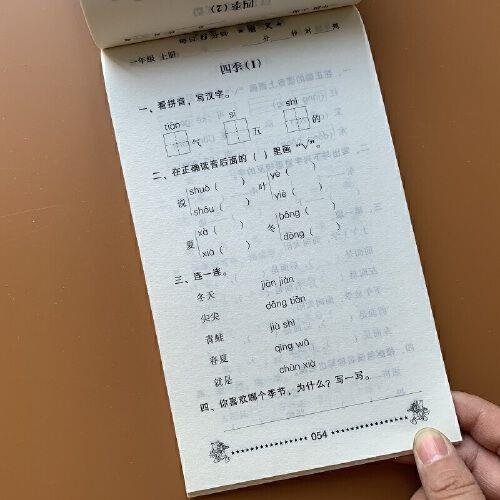 四季(2)
一年级 上册
语文
分 秒 对 题
四季(1)
一、看拼音，写汉字。
tiān sì shì
气 五 的
二、在正确读音后面的（ ）里画“√”。
说 shuō（ ） 叶 yè（ ）
shōu（ ） yiè（ ）
夏 xà（ ） 冬 bōng（ ）
xià（ ） dōng（ ）
三、连一连。
冬天 jiān jiān
尖尖 dōng tiān
青蛙 jiù shì
春夏 qīng wā
就是 chūn xià
四、你喜欢哪个季节，为什么？写一写。
054